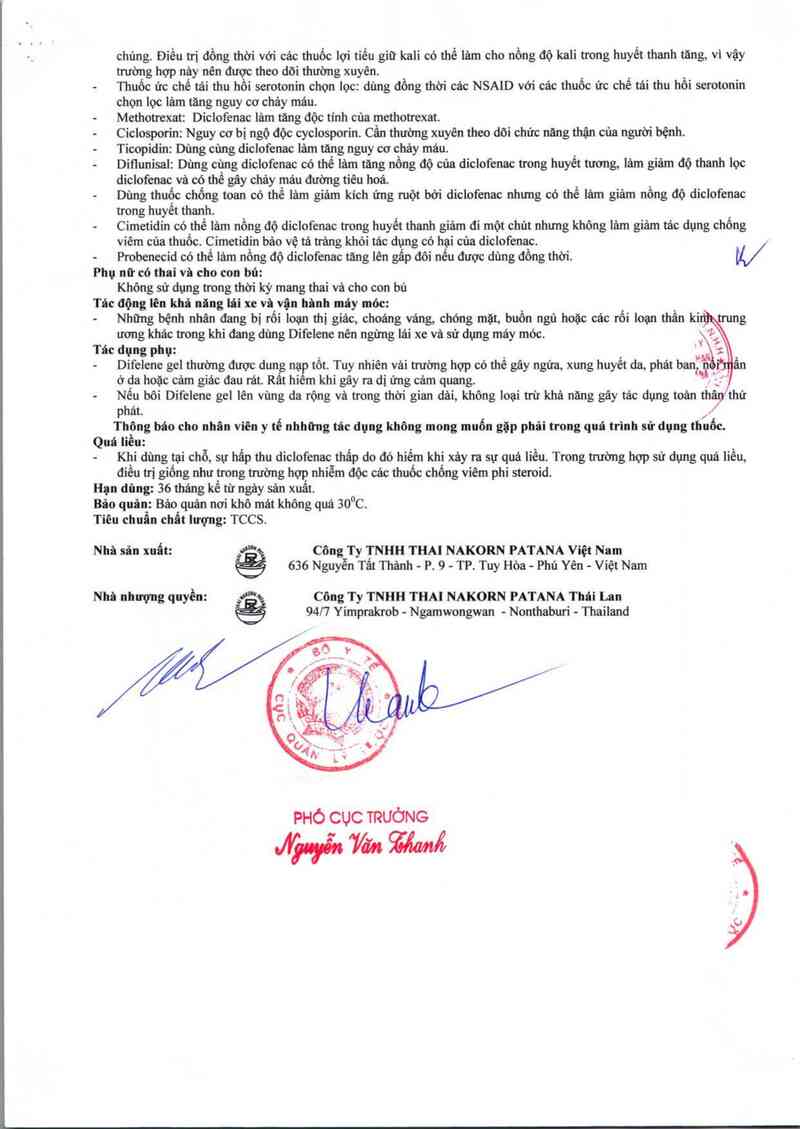 chúng. Điều trị đồng thời với các thuốc lợi tiểu giữ kali có thể làm cho nồng độ kali trong huyết thanh tăng, vì vậy
trường hợp này nên được theo dõi thường xuyên.
- Thuốc ức chế tái thu hồi serotonin chọn lọc: dùng đồng thời các NSAID với các thuốc ức chế tái thu hồi serotonin
chọn lọc làm tăng nguy cơ chảy máu.
- Methotrexat: Diclofenac làm tăng độc tính của methotrexat.
- Ciclosporin: Nguy cơ bị ngộ độc cyclosporin. Cần thường xuyên theo dõi chức năng thận của người bệnh.
- Ticopidin: Dùng cùng diclofenac làm tăng nguy cơ chảy máu.
- Diflunisal: Dùng cùng diclofenac có thể làm tăng nồng độ của diclofenac trong huyết tương, làm giảm độ thanh lọc
diclofenac và có thể gây chảy máu đường tiêu hoá.
- Dùng thuốc chống toan có thể làm giảm kích ứng ruột bởi diclofenac nhưng có thể làm giảm nồng độ diclofenac
trong huyết thanh.
- Cimetidin có thể làm nồng độ diclofenac trong huyết thanh giảm đi một chút nhưng không làm giảm tác dụng chống
viêm của thuốc. Cimetidin bảo vệ tá tràng khỏi tác dụng có hại của diclofenac.
- Probenecid có thể làm nồng độ diclofenac tăng lên gấp đôi nếu được dùng đồng thời.
Phụ nữ có thai và cho con bú:
Không sử dụng trong thời kỳ mang thai và cho con bú
Tác động lên khả năng lái xe và vận hành máy móc:
- Những bệnh nhân đang bị rối loạn thị giác, choáng váng, chóng mặt, buồn ngủ hoặc các rối loạn thần kinh trung
ương khác trong khi đang dùng Difelene nên ngừng lái xe và sử dụng máy móc.
Tác dụng phụ:
- Difelene gel thường được dung nạp tốt. Tuy nhiên vài trường hợp có thể gây ngứa, xung huyết da, phát ban, nổi mẩn
ở da hoặc cảm giác đau rát. Rất hiếm khi gây ra dị ứng cảm quang.
- Nếu bôi Difelene gel lên vùng da rộng và trong thời gian dài, không loại trừ khả năng gây tác dụng toàn thân thứ
phát.
Thông báo cho nhân viên y tế nhhững tác dụng không mong muốn gặp phải trong quá trình sử dụng thuốc.
Quá liều:
- Khi dùng tại chỗ, sự hấp thu diclofenac thấp do đó hiếm khi xảy ra sự quá liều. Trong trường hợp sử dụng quá liều,
điều trị giống như trong trường hợp nhiễm độc các thuốc chống viêm phi steroid.
Hạn dùng: 36 tháng kể từ ngày sản xuất.
Bảo quản: Bảo quản nơi khô mát không quá 30°C.
Tiêu chuẩn chất lượng: TCCS.
Nhà sản xuất: Công Ty TNHH THAI NAKORN PATANA Việt Nam
636 Nguyễn Tất Thành - P. 9 - TP. Tuy Hòa - Phú Yên - Việt Nam
Nhà nhượng quyền: Công Ty TNHH THAI NAKORN PATANA Thái Lan
94/7 Yimprakrob - Ngamwongwan - Nonthaburi - Thailand
BỘ Y TẾ
CỤC QUẢN LÝ
Thanh
PHÓ CỤC TRƯỞNG
Nguyễn Văn Thanh